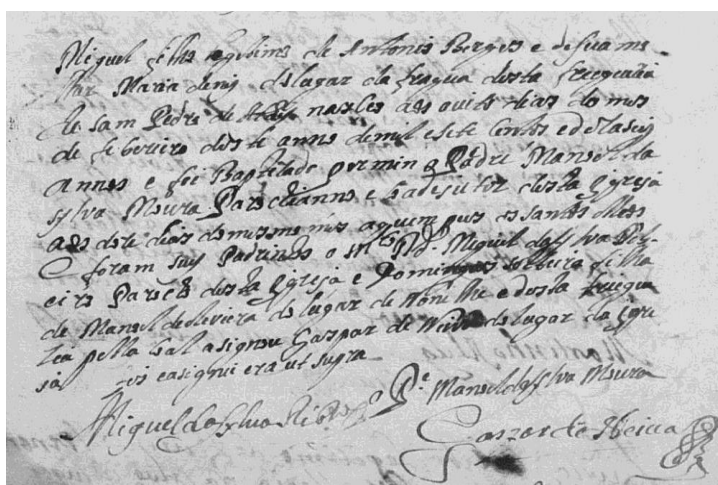 Miguel filho legitimo de Antonio Borges e de sua mo
lher Maria diniz do lugar da fragua desta freiguezia
de sam Pedro de nasseo aos outo dias do mes
de febereiro deste anno de mil e sete centos e dezaseis
annos e foi Baptizado por min o Padre Manoel da
Sylva Moura Parochianno e Coadejutor desta Igreja
aos doze dias do mesmo mes aquem pus os santos olleos
e foram seus Padrinhos o Miguel da Sylva Rib
eiro desta Igreja e Domingas filha
de Manoel de oliveira do lugar de e desta freigue
zia pella coal asignou Gaspar de do lugar da Igre
ja e asignei era ut supra
Pe. Manoel da Sylva Moura
Miguel da Sylva Ribro
Gaspar de